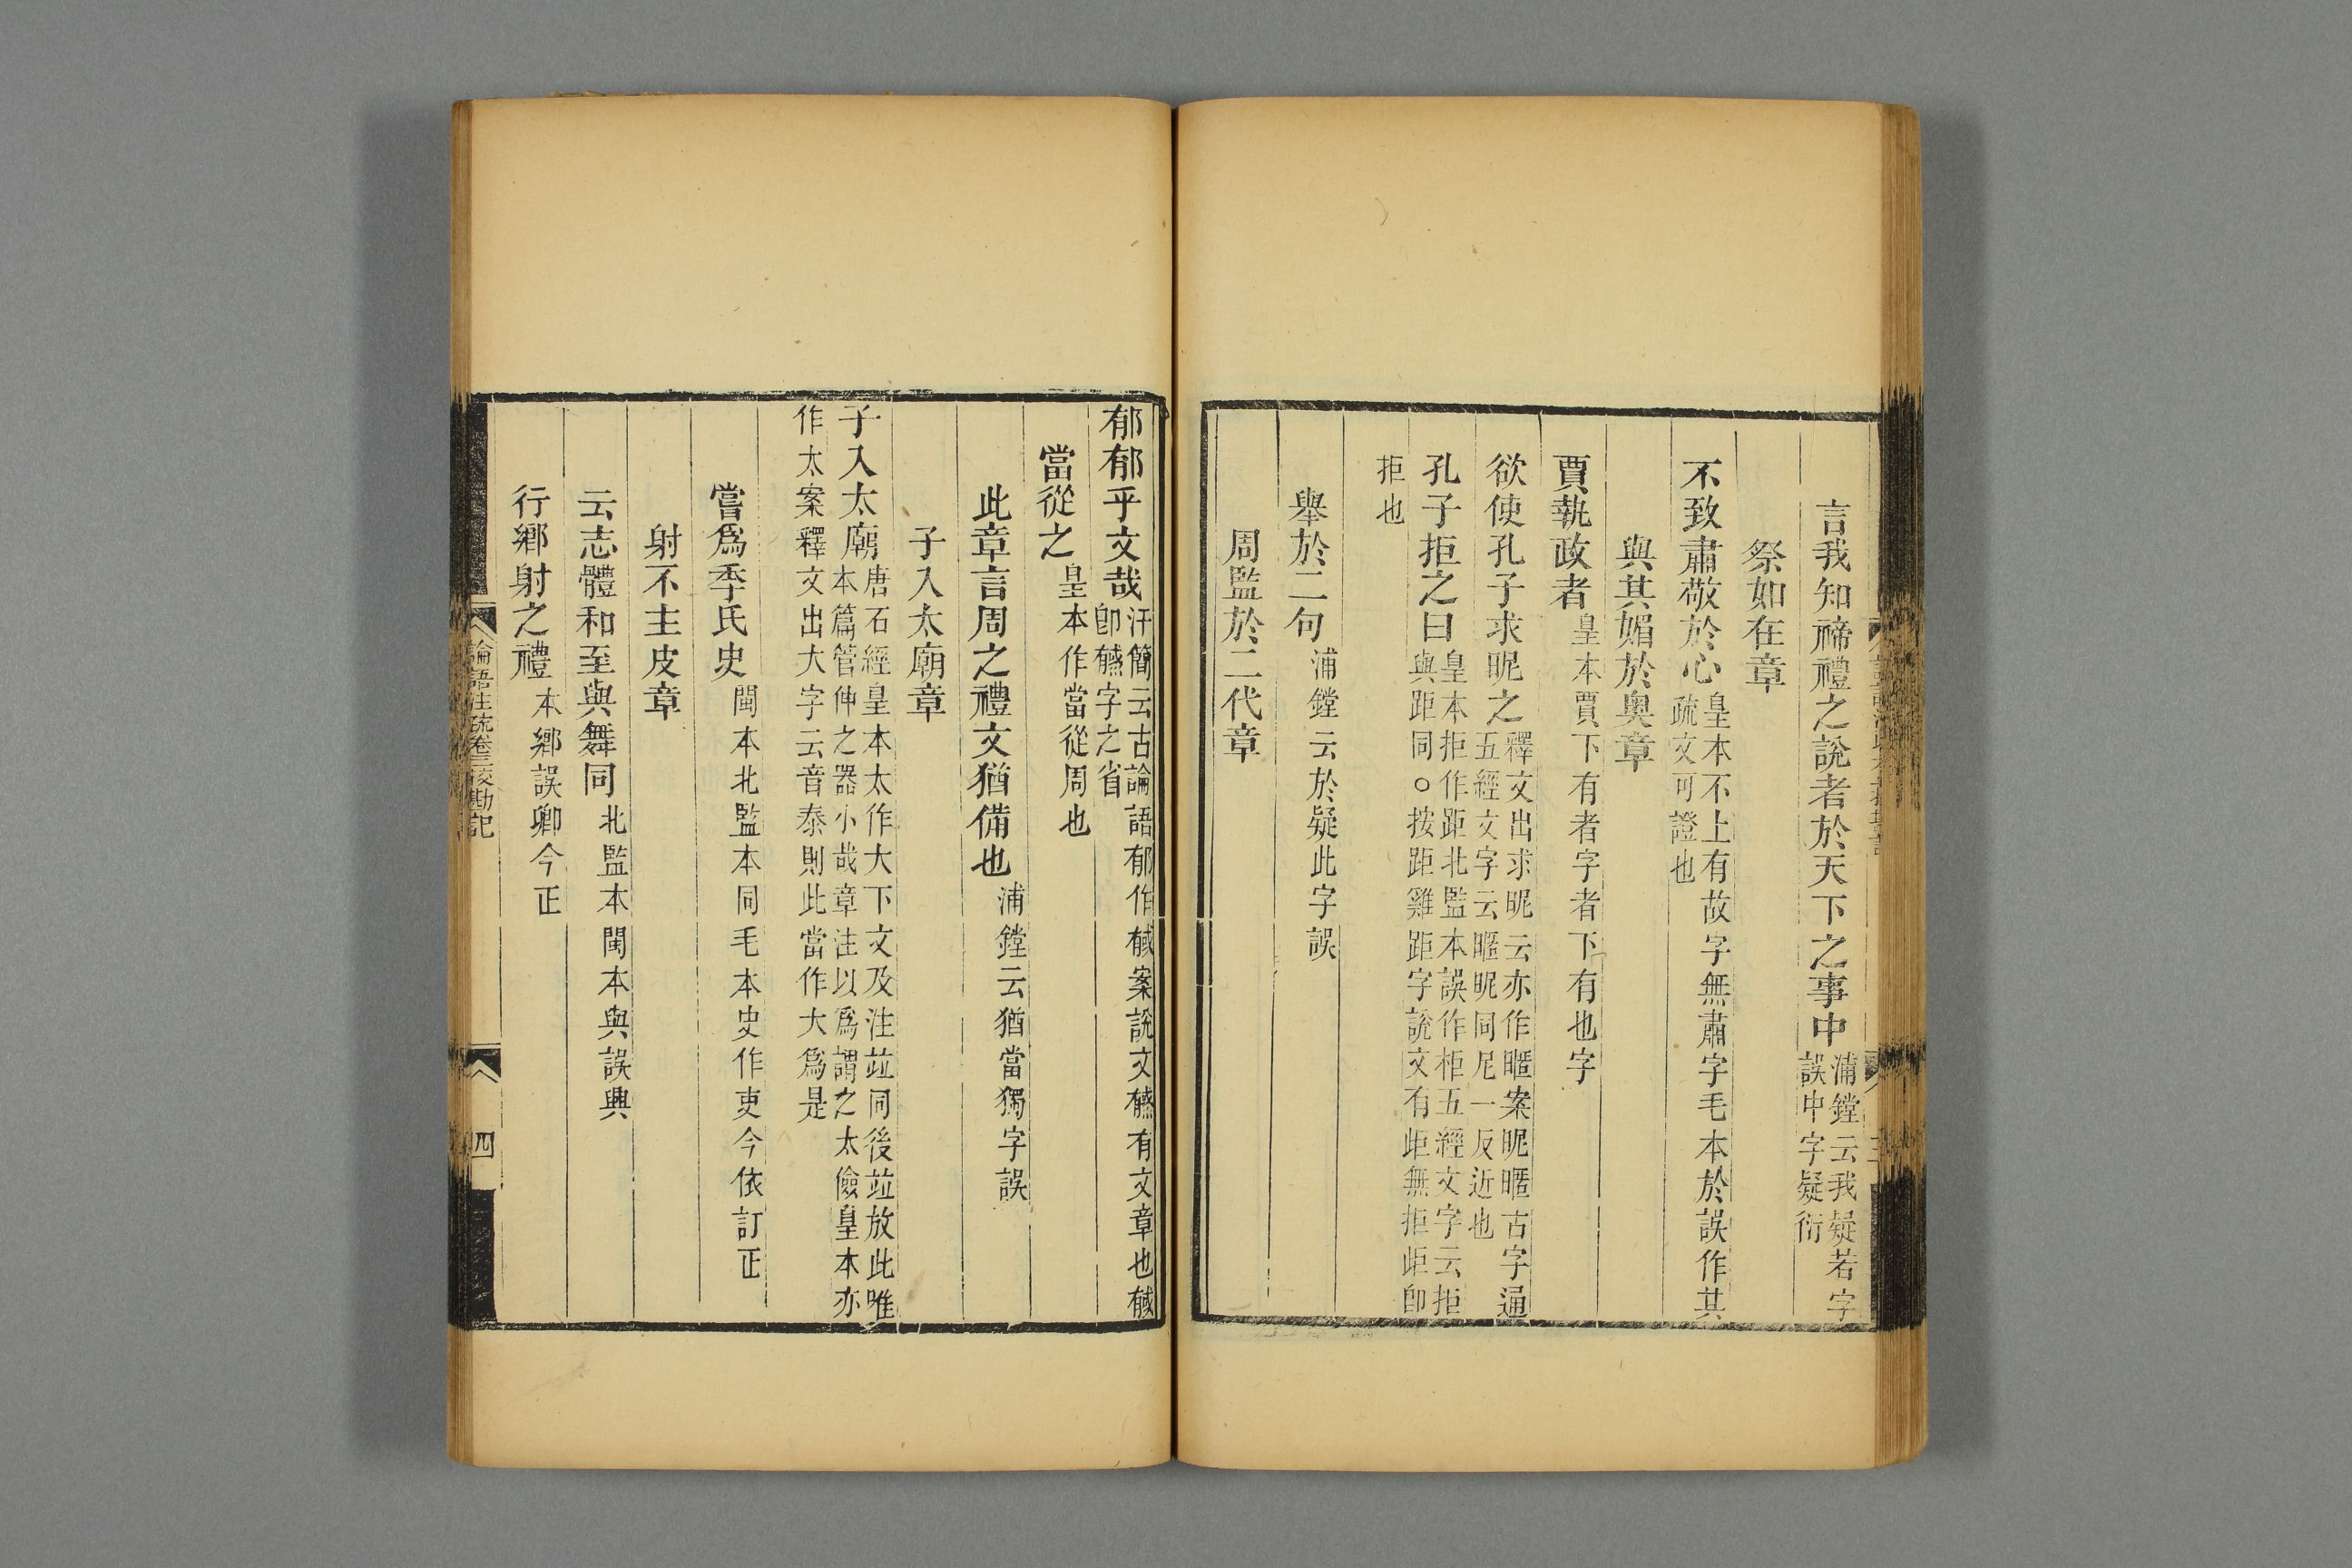 言我知禘禮之說者於天下之事中浦鏜云我疑若字誤中字疑衍
祭如在章
不致肅敬於心皇本不上有故字無肅字毛本於誤作其疏文可證也
與其媚於奧章
賈執政者皇本賈下有者字者下有也字
欲使孔子求昵之釋文出求昵云亦作暱案昵暱古字通五經文字云暱昵同尼一反近也
孔子拒之曰皇本拒作距北監本誤作柜五經文字云拒與距同○按距雞距字說文有歫無拒歫卽
拒也
舉於二句浦鏜云於疑此字誤
周監於二代章
郁郁乎文哉汗簡云古論語郁作䎉案說文𢒰有文章也䎉卽𢒰字之省
當從之皇本作當從周也
此章言周之禮文猶備也浦鏜云猶當獨字誤
子入太廟章
子入太廟唐石經皇本太作大下文及注竝同後竝放此唯本篇管仲之器小哉章注以爲謂之太儉皇本亦
作太案釋文出大字云音泰則此當作大爲是
嘗爲季氏史閩本北監本同毛本史作吏今依訂正
射不主皮章
云志體和至與舞同北監本閩本與誤興
行鄉射之禮本鄉誤卿今正
論語注疏卷三校勘記
四